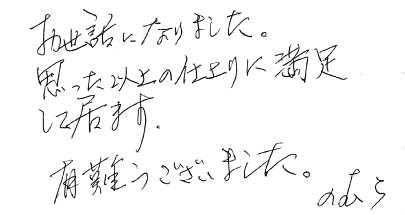 お世話になりました。
思った以上の仕上りに満足
して居ます.
有難うございました。
のむら